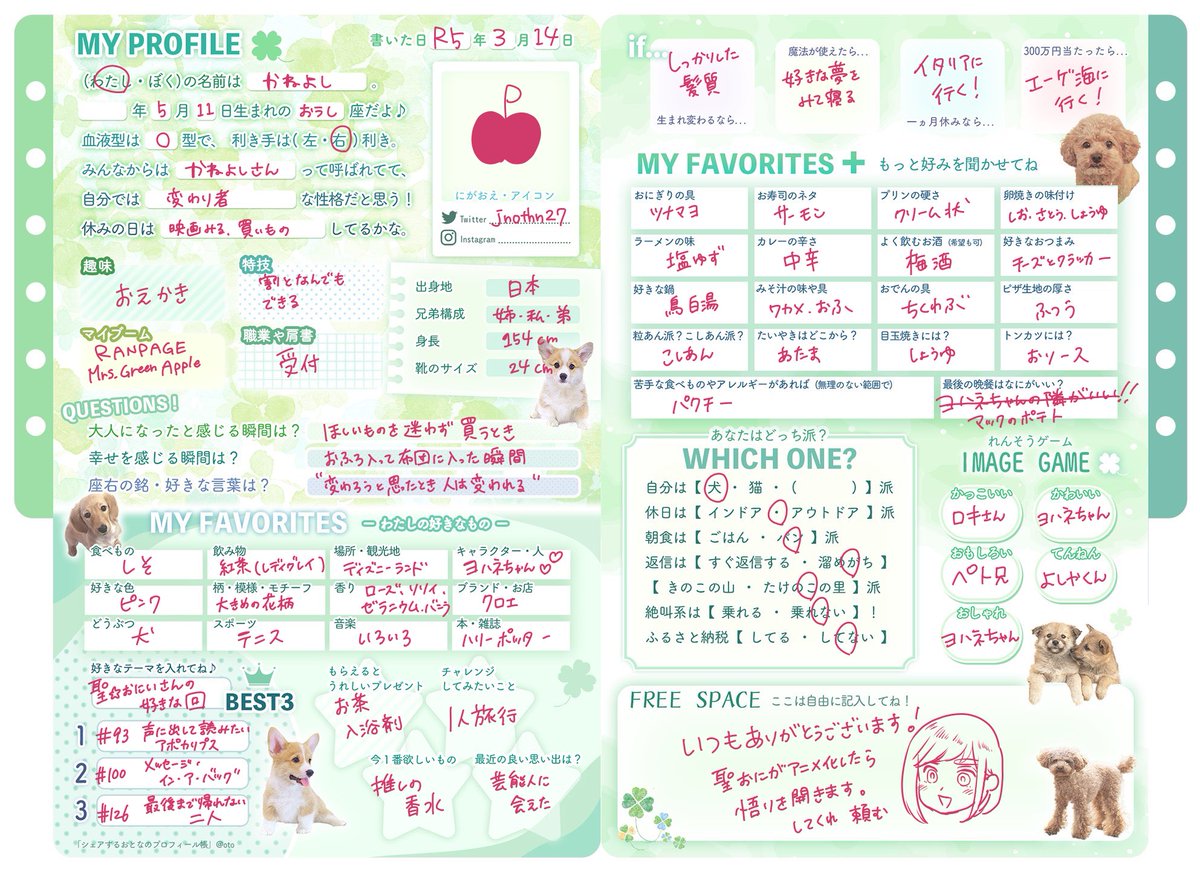 MY PROFILE
書いた日 R5 年 3 月 14 日
(わたし・ぼく)の名前は かねよし 。
年 5 月 11 日生まれの おうし 座だよ♪
血液型は O 型で、 利き手は( 左・右 )利き。
みんなからは かねよしさん って呼ばれてて、
自分では 変わり者 な性格だと思う!
休みの日は 映画みる、買いもの してるかな。
にがおえ・アイコン
Twitter jnothn27
Instagram
趣味
おえかき
特技
割となんでも
できる
マイブーム
RANPAGE
Mrs. Green Apple
職業や肩書
受付
出身地 日本
兄弟構成 姉・私・弟
身長 154 cm
靴のサイズ 24 cm
QUESTIONS!
大人になったと感じる瞬間は? ほしいものを迷わず買うとき
幸せを感じる瞬間は? おふろ入って布団に入った瞬間
座右の銘・好きな言葉は? "変わろうと思ったとき人は変われる"
MY FAVORITES ーわたしの好きなものー
食べもの しそ
飲み物 紅茶(レディグレイ)
場所・観光地 ディズニーランド
キャラクター・人 ヨハネちゃん♡♡
好きな色 ピンク
柄・模様・モチーフ 大きめの花柄
香り ローズ、リリイ、
ゼラニウム、バニラ
ブランド・お店 クロエ
どうぶつ 犬
スポーツ テニス
音楽 いろいろ
本・雑誌 ハリーポッター
好きなテーマを入れてね♪
聖☆おにいさんの
好きな回
BEST3
1 #93 声に出して読みたい
アポカリプス
2 #100 メッセージ・
イン・ア・バッグ
3 #126 最後まで帰れない
二人
もらえると
うれしいプレゼント
お茶
入浴剤
チャレンジ
してみたいこと
1人旅行
今1番欲しいもの
推しの
香水
最近の良い思い出は?
芸能人に
会えた
「シェアするおとなのプロフィール帳」@oto
if...
しっかりした
髪質
生まれ変わるなら...
魔法が使えたら...
好きな夢を
みて寝る
イタリアに
行く!
一ヵ月休みなら...
300万円当たったら...
エーゲ海に
行く!
MY FAVORITES + もっと好みを聞かせてね
おにぎりの具 ツナマヨ
お寿司のネタ サーモン
プリンの硬さ クリーム状
卵焼きの味付け しお、さとう、しょうゆ
ラーメンの味 塩ゆず
カレーの辛さ 中辛
よく飲むお酒 (希望も可) 梅酒
好きなおつまみ チーズとクラッカー
好きな鍋 鳥白湯
みそ汁の味や具 ワカメ、おふ
おでんの具 ちくわぶ
ピザ生地の厚さ ふつう
粒あん派?こしあん派? こしあん
たいやきはどこから? あたま
目玉焼きには? しょうゆ
トンカツには? おソース
苦手な食べものやアレルギーがあれば (無理のない範囲で)
パクチー
最後の晩餐はなにがいい?
ヨハネちゃんの隣がいい!!
マックのポテト
あなたはどっち派?
WHICH ONE?
自分は【 犬 ・ 猫 ・ ( ) 】派
休日は【 インドア ・ アウトドア 】派
朝食は【 ごはん ・ パン 】派
返信は【 すぐ返信する ・ 溜めがち 】
【 きのこの山 ・ たけのこの里 】派
絶叫系は【 乗れる ・ 乗れない 】!
ふるさと納税【 してる ・ してない 】
れんそうゲーム
IMAGE GAME
かっこいい
ロキさん
かわいい
ヨハネちゃん
おもしろい
ペト兄
てんねん
よしやくん
おしゃれ
ヨハネちゃん
FREE SPACE ここは自由に記入してね!
いつもありがとうございます!
聖おにがアニメ化したら
悟りを開きます。
してくれ 頼む